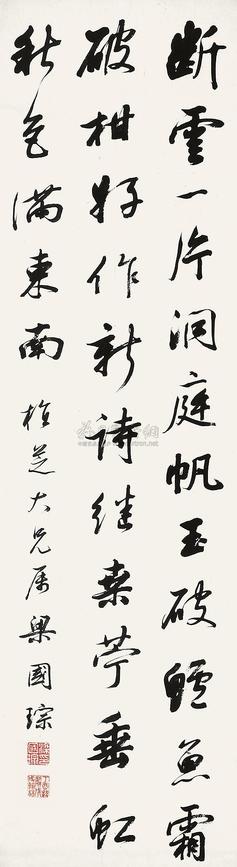 断雲一片洞庭帆玉破鱸魚霜
破柑好作新詩继桑苧垂虹
秋色滿東南 芝大兄属 梁國琮